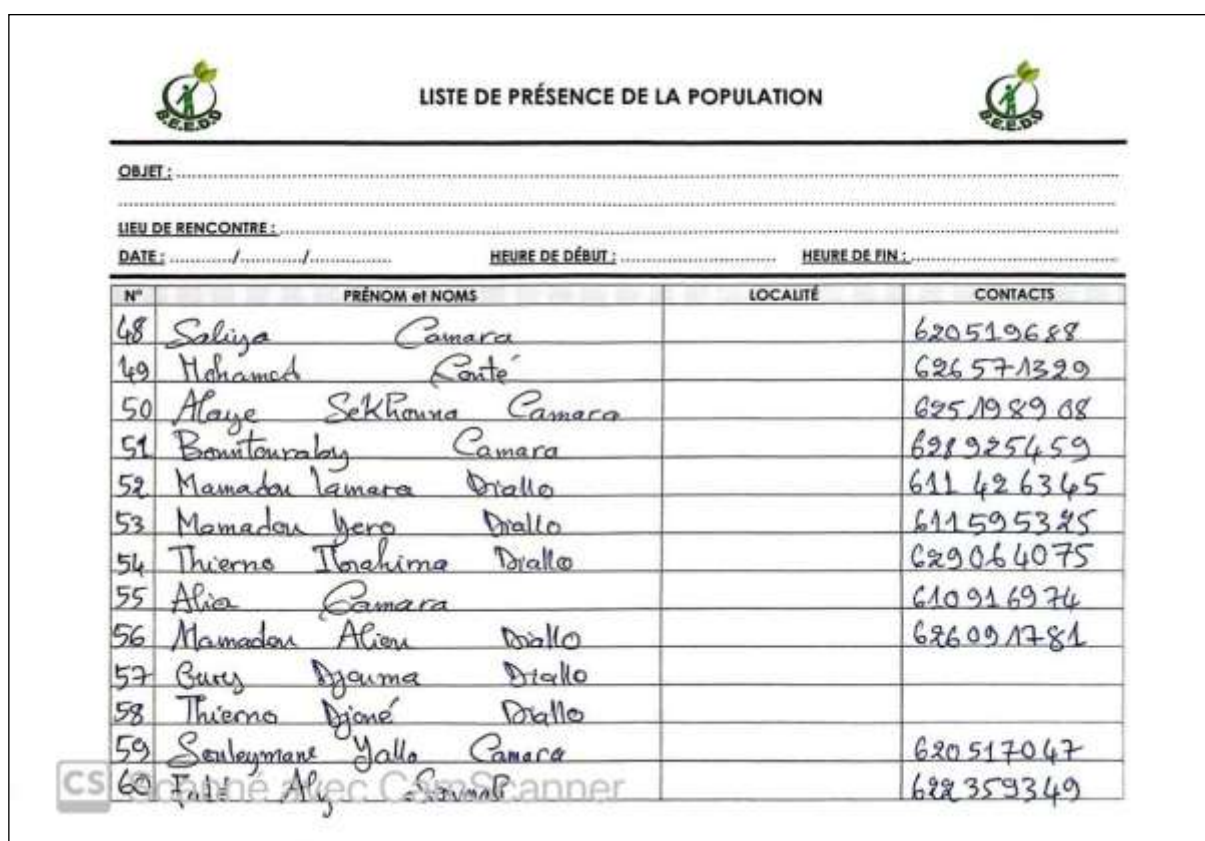 B.E.E.D.D
LISTE DE PRÉSENCE DE LA POPULATION
B.E.E.D.D
OBJET :
LIEU DE RENCONTRE :
DATE : ............/............/............... HEURE DE DÉBUT : HEURE DE FIN :
N° PRÉNOM et NOMS LOCALITÉ CONTACTS
48 Saliya Camara 620519688
49 Mohamed Conté 626571329
50 Alaye Sekhouna Camara 625198908
51 Bountouraby Camara 628925459
52 Mamadou Lamara Diallo 611426345
53 Mamadou Yero Diallo 611595325
54 Thierno Ibrahima Diallo 629064075
55 Alia Camara 610916974
56 Mamadou Aliou Diallo 626091781
57 Djouma Diallo
58 Thierno Djoné Diallo
59 Souleymane Yallo Camara 620517047
60 Aly 622359349
CS Scanné avec CamScanner